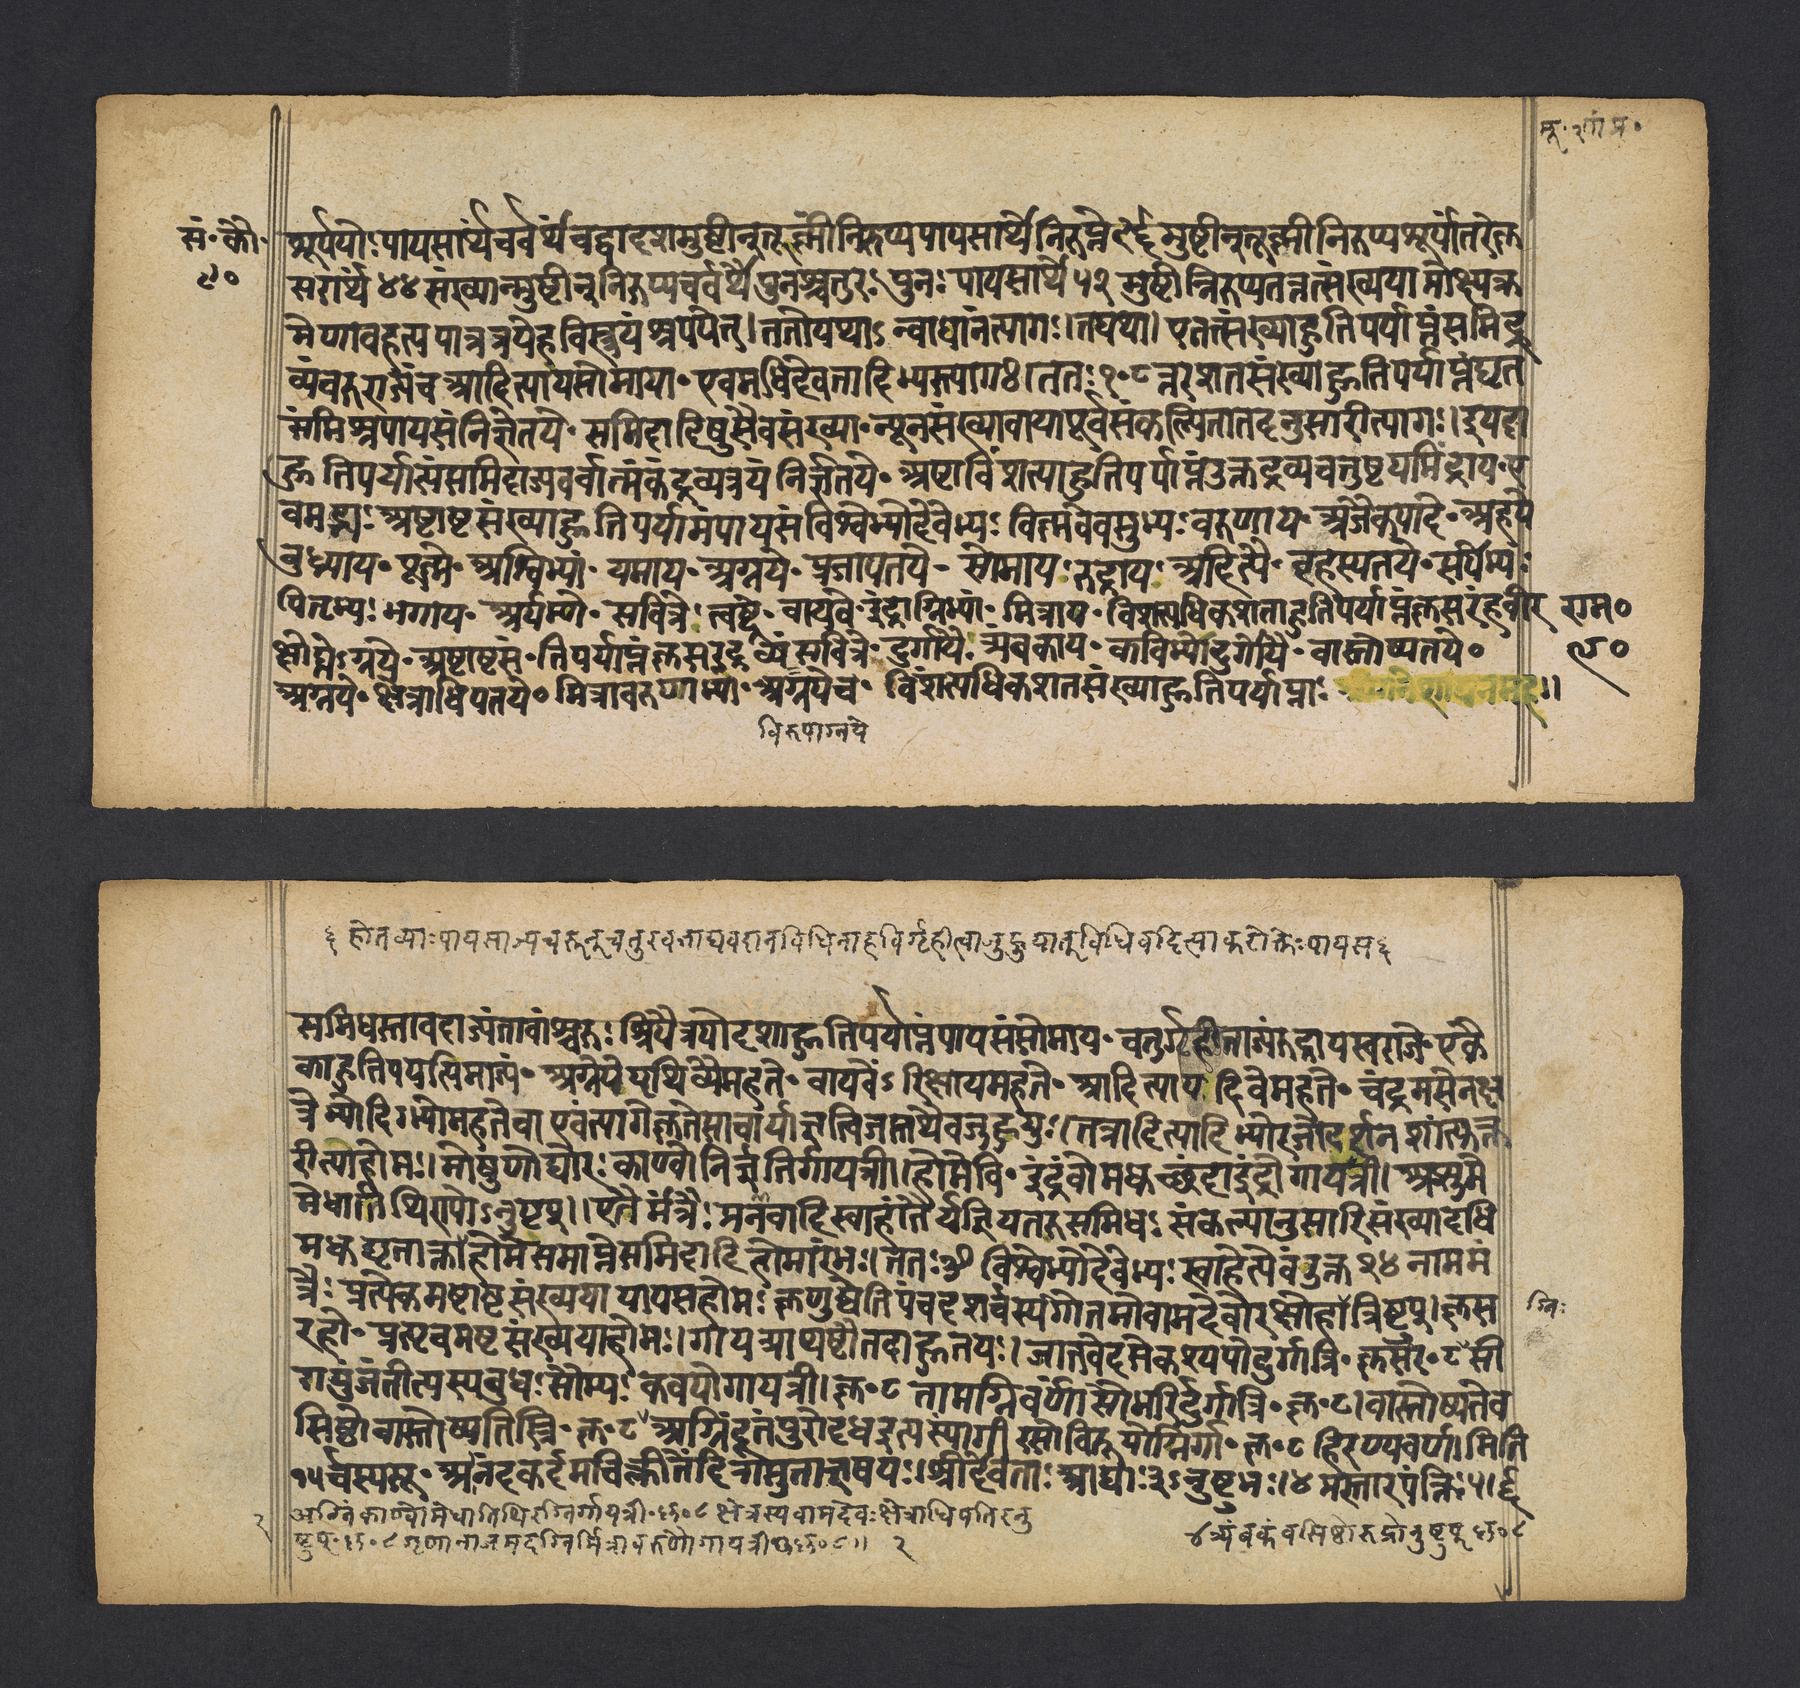 मू॰ २ गां प्र॰
सं॰ कौ॰
९०
शूर्पयोः पायसार्थं चर्वर्थं च द्वादशमुष्टीन् तूष्णीं निरुप्य पायसार्थं निरुप्ते मुष्टीन् तूष्णीं निरुप्य शूर्पांतरे कृ
सरार्थं ४४ संख्यान्मुष्टीन् निरुप्य चर्वर्थं पुनश्चतुरः पुनः पायसार्थं ५२ मुष्टीन्निरुप्य तत्तत्संख्यया प्रोक्ष्य क्र
मेणावहत्य पात्रत्रये हविस्त्रयं श्रपयेत् । ततोपध्याऽन्वाधानं त्यागः । तद्यथा । एतत्संख्याहुतिपर्याप्तं समिद्द्र
व्यं चरुराज्यं च आदित्याय सोमाया॰ एवमधिदेवतादिभ्यस्त्यागः । ततः १०८ त्तरशतसंख्याहुतिपर्याप्तं घृत
संमिश्रपायसं निर्ऋतये॰ समिदादिषु सैव संख्या॰ न्यूनसंख्या वा या पूर्वं संकल्पिता तदनुसारी त्यागः । इयदा
हुतिपर्याप्तं समिदाज्यचर्वात्मकं द्रव्यत्रयं निर्ऋतये॰ अष्टाविंशत्याहुतिपर्याप्तं उक्तद्रव्यचतुष्टयमिंद्राय॰ ए
वमद्भ्यः अष्टाष्टसंख्याहुतिपर्याप्तं पायसं विश्वेभ्यो देवेभ्यः विष्णवे वसुभ्यः वरुणाय॰ अजैकपादे॰ अहये
बुध्न्याय॰ पूष्णे॰ अश्विभ्यां॰ यमाय॰ अग्नये॰ प्रजापतये॰ सोमाय॰ रुद्राय॰ अदित्यै॰ बृहस्पतये॰ सर्पेभ्यः
पितृभ्यः भगाय॰ अर्यम्णे॰ सवित्रे॰ त्वष्ट्रे॰ वायवे॰ इंद्राग्निभ्यां॰ मित्राय॰ विंशत्यधिकशताहुतिपर्याप्तं कृसरं हवी र
क्षोघ्नेऽग्नये॰ अष्टाष्टसं॰ तिपर्याप्तं कृसरद्रव्यं सवित्रे॰ दुर्गायै॰ त्र्यंबकाय॰ कविभ्यो दुर्गायै॰ वास्तोष्पतये॰
अग्नये॰ क्षेत्राधिपतये॰ मित्रावरुणाभ्यां॰ अग्नये च॰ विंशत्यधिकशतसंख्याहुतिपर्याप्ताः
विरूपाग्नये
राम॰
९०
होतव्याः पायसाज्यचरून् चतुरवत्ताद्यवदानविधिना हविर्गृहीत्वा जुहुयात् विधिवदित्या करोक्तेः पायस
समिधस्तावदाज्यं तावांश्चरुः श्रियै त्रयोदशाहुतिपर्याप्तं पायसं सोमाय॰ चतुर्गृहीताज्यं रुद्राय स्वराजे॰ एकै
काहुतिपर्याप्तमाज्यं॰ अग्नये पृथिव्यै महते॰ वायवेंऽतरिक्षाय महते॰ आदित्याय दिवे महते॰ चंद्रमसे नक्ष
त्रेभ्यो दिग्भ्यो महते वा एवं त्यागे कृते साचार्या ऋत्विजस्तथैव जुहुयुः । तत्रादित्यादिभ्यो शांत्युक्त
रीत्या होमः । मोषुणो घोरः काण्वो निर्ऋतिर्गायत्री । होमे वि॰ इंद्रं वो मधुच्छंदा इंद्रो गायत्री । अप्सु मे
मेधातिथिरापोऽनुष्टुप् । एतैर्मंत्रैः प्रणवादिस्वाहांतैर्यज्ञियतरुसमिधः संकल्पानुसारिसंख्या दधि
मधुघृताक्ता होमे समाप्ते समिदादि होमारंभः । ततः ॐ विश्वेभ्यो देवेभ्यः स्वाहेत्येवं उक्त २४ नाममं
त्रैः प्रत्येकमष्टाष्टसंख्यया पायसहोमः कृणुष्वेति पंचदशर्चस्य गौतमो वामदेवो रक्षोहा त्रिष्टुप् । कृस
रहो॰ प्रत्यृचमष्टसंख्यया होमः । गायत्र्याथष्टौ तदाहुतयः । जातवेदसे कश्यपो दुर्गा त्रि॰ कृसर॰ ८ सी
रायुंजंतीत्यस्य बुधः सौम्यः कवयो गायत्री । कृ॰ ८ तामग्निवर्णां सोभरिर्दुर्गा त्रि॰ कृ॰ ८ । वास्तोष्पते व
सिष्ठो वास्तोष्पतिस्त्रि॰ कृ॰ ८ अग्निं दूतं पुरोदध इत्यस्यांगी रसो विरूपोग्निर्गा॰ कृ॰ ८ हिरण्यवर्णामिति
१५ र्चस्य सू॰ आनंदकर्दमचिक्लीतेंदिरासुता ऋषयः । श्रीर्देवता आद्याः ३ऽनुष्टुभः । ४ प्रस्तारपंक्तिः । ५ ।
ग्निः
२ अग्निं काण्वो मेधातिथिरग्निर्गायत्री॰ कृ॰ ८ क्षेत्रस्य वामदेवः क्षेत्राधिपतिरनु
ष्टुप्॰ कृ॰ ८ गृणाना जमदग्निर्मित्रावरुणौ गायत्री कृ॰ ८ ॥ २
४ त्र्यंबकं वसिष्ठो रुद्रोनुष्टुप् कृ॰ ८